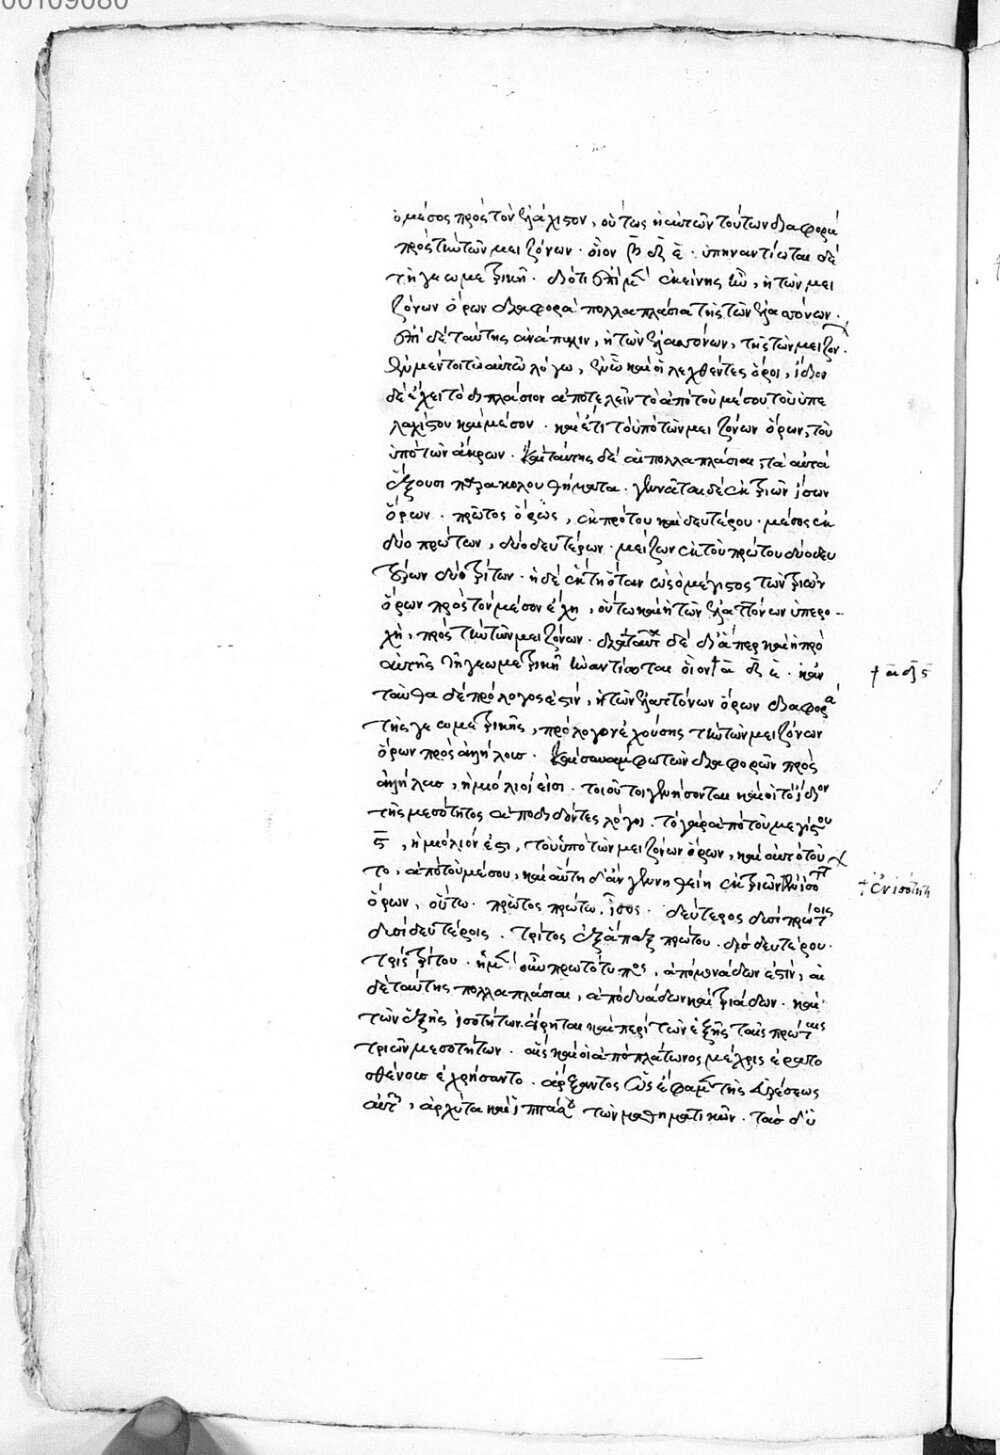 00109080
ὁ μέσος πρὸς τὸν ἐλάχιστον, οὕτως ἡ αὐτῶν τούτων διαφορὰ
πρὸς τὴν τῶν μειζόνων. οἷον β̅ ε̅. ὑπηναντίωται δὲ
τῇ γεωμετρικῇ. διότι ἐπὶ μὲν ἐκείνης ἦν, ἡ τῶν μει
ζόνων ὅρων διαφορὰ πολλαπλάσια τῆς τῶν ἐλαττόνων.
ἐπὶ δὲ ταύτης ἀνάπαλιν, ἡ τῶν ἐλαττόνων, τῆς τῶν μειζόν.
ἐν μέντοι τῷ αὐτῷ λόγῳ, ἐν ᾧ καὶ οἱ λεχθέντες ὅροι, ἴδιον
δὲ ἔχει τὸ διπλάσιον ἀποτελεῖν τὸ ἀπὸ τοῦ μέσου τοῦ ὑπ ἐ
λαχίστου καὶ μέσον. καὶ ἔτι τοῦ ὑπὸ τῶν μειζόνων ὅρων, τοῦ
ὑπὸ τῶν ἄκρων. καὶ ταύτης δὲ αἱ πολλαπλάσιαι, τὰ αὐτὰ
ἕξουσι παρακολουθήματα. γεννᾶται δὲ ἐκ τριῶν ἴσων
ὅρων. πρῶτος ὅρος, ἐκ πρώτου καὶ δευτέρου. μέσος ἐκ
δύο πρώτων, δύο δευτέρων. μείζων ἐκ τοῦ πρώτου δύο δευ
τέρων δύο τρίτων. ἡ δὲ ἕκτη ὅταν ὡς ὁ μέγιστος τῶν τριῶν
ὅρων πρὸς τὸν μέσον ἔχῃ, οὕτω καὶ ἡ τῶν ἐλαττόνων ὑπερο-
χὴ, πρὸς τὴν τῶν μειζόνων. διὰ ταῦτα δὲ διάπερ καὶ ἡ πρὸ
αὐτῆς τῇ γεωμετρικῇ ἠναντίωται οἷον † α̅ δ̅ ε̅. κἀν
† α̅ δ̅ ς̅
ταῦθα δὲ πρόλογός ἐστιν, ἡ τῶν ἐλαττόνων ὅρων διαφορὰ
τῆς γεωμετρικῆς, πρόλογον ἐχούσης τὴν τῶν μειζόνων
ὅρων πρὸς ἀλλήλους. καὶ συναμφωτῶν διαφορῶν πρὸς
ἀλλήλας, ἡμιόλιοί εἰσι. τοιοῦτοι γεννήσονται καὶ οἱ τὸ ἴδιον
τῆς μεσότητος ἀποδιδόντες λόγοι. τὸ γὰρ ἀπὸ τοῦ μεγίστου
ς̅, ἡμιόλιόν ἐστι, τοῦ ὑπὸ τῶν μειζόνων ὅρων, καὶ αὐτὸ τοῦ
το, ἀπὸ τοῦ μέσου, καὶ αὕτη δ᾽ ἂν γεννηθείη ἐκ τριῶν ἐν ἰσότητι
† ἐν ἰσότητι
ὅρων, οὕτω. πρῶτος πρώτῳ ἴσος. δεύτερος δυσὶ πρώτοις
δυσὶ δευτέροις. τρίτος ἑξάπαξ πρώτου. δὶς δευτέρου.
τρὶς τρίτου. ἡ μὲν οὖν πρωτότυπος, ἀπὸ μονάδων ἐστὶν, αἱ
δὲ ταύτης πολλαπλάσιαι, ἀπὸ δυάδων καὶ τριάδων. καὶ
τῶν ἑξῆς ἰσοτήτων. εἴρηται καὶ περὶ τῶν ἑξῆς ταῖς πρώταις
τριῶν μεσοτήτων. αἷς καὶ οἱ ἀπὸ πλάτωνος μέχρις ἐρατο
σθένους ἐχρήσαντο. ἄρξαντος ὡς ἔφαμεν τῆς εὑρέσεως
αὐτῶν, ἀρχύτα καὶ ἱππάσου τῶν μαθηματικῶν. τὰς δ᾽ ὑ